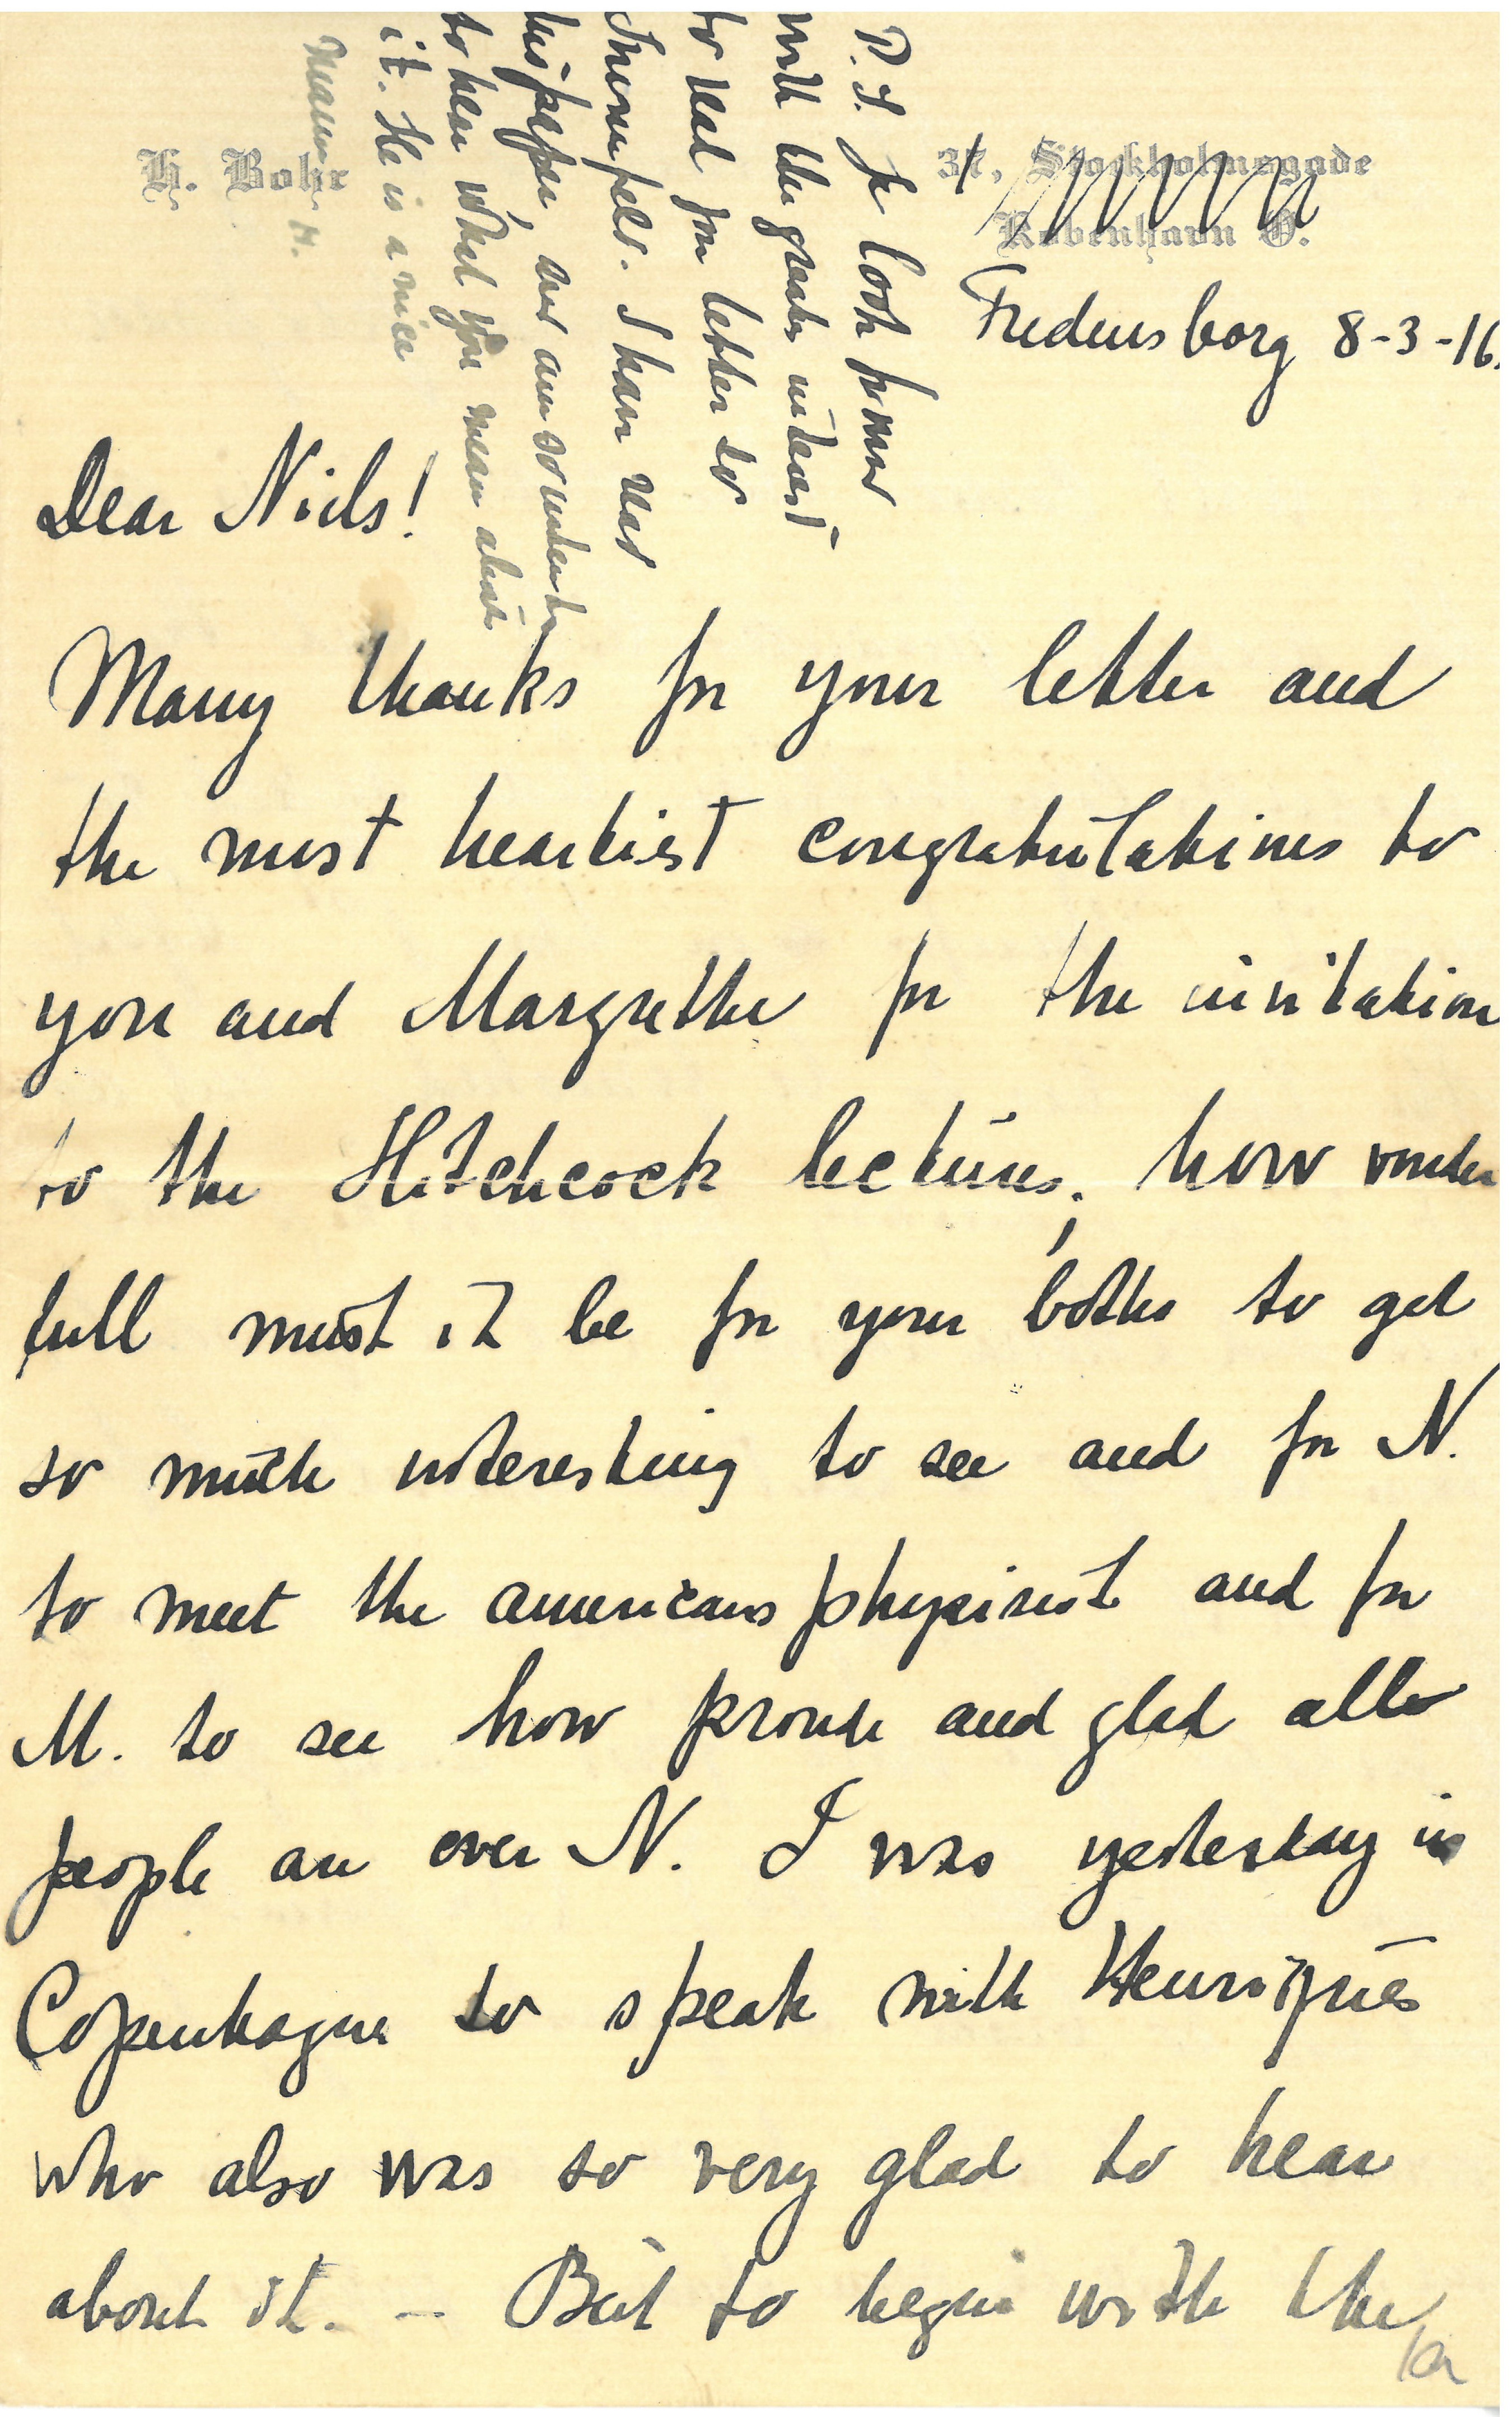 H. Bohr
37, Stockholmsgade
København Ö.
Fredensborg 8-3-16.
Dear Niels!
Many thanks for your letter and
the most heartiest congratulations to
you and Margrethe for the invitation
to the Hitchcock lectures, how vonder
full must it be for your boths to get
so much interesting to see and for N.
to meet the americans physisist and for
M. to see how proude and glad alle
people are over N. I was yesterday in
Copenhagne to speak with Henriques
who also was so very glad to hear
about it. — But to begin with the
P.S. Je look forward
with the greates interest
to read your letter to
I have read
his paper, and am so
to hear what you mean about
it. He is a nice